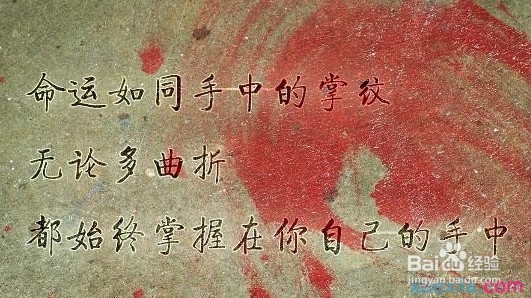 命运如同手中的掌纹
无论多曲折
都始终掌握在你自己的手中
Baidu经验
jingyan.baidu.com